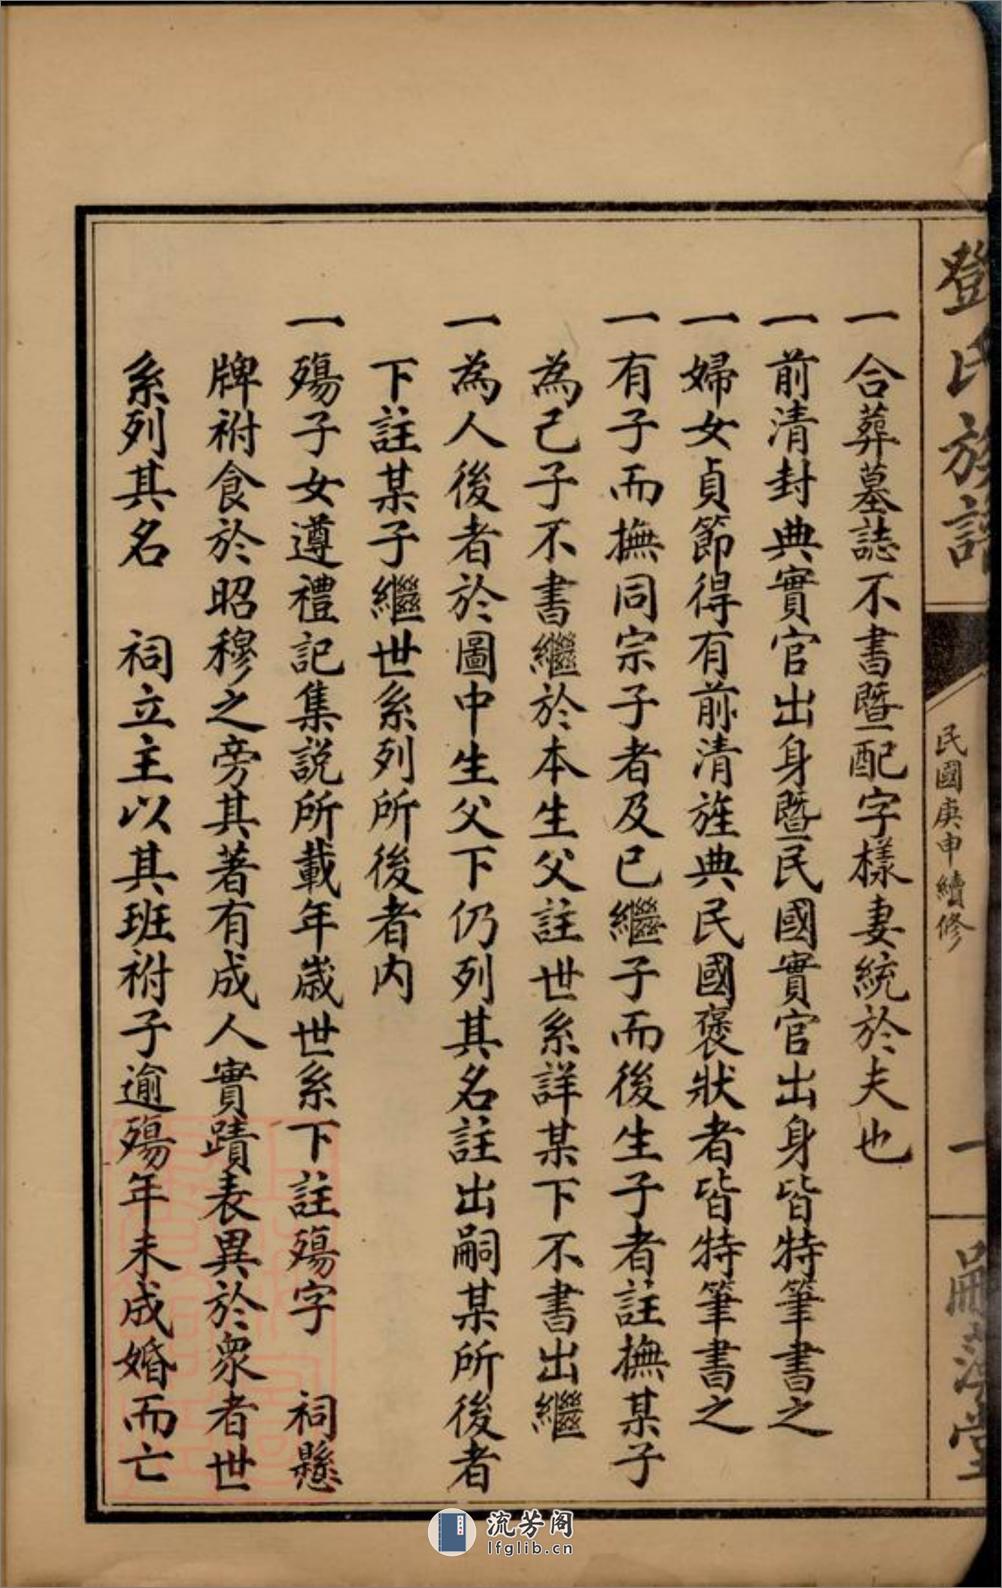 鄧氏族譜
民國庚申續修
一
堂
一合葬墓誌不書暨配字樣妻統於夫也
一前清封典實官出身暨民國實官出身皆特筆書之
一婦女貞節得有前清旌典民國褒狀者皆特筆書之
一有子而撫同宗子者及已繼子而後生子者註撫某子
為己子不書繼於本生父註世系詳某下不書出繼
一為人後者於圖中生父下仍列其名註出嗣某所後者
下註某子繼世系列所後者內
一殤子女遵禮記集說所載年歲世系下註殤字 祠懸
牌祔食於昭穆之旁其著有成人實蹟表異於衆者世
系列其名 祠立主以其班祔子逾殤年未成婚而亡
流芳阁
lfglib.cn